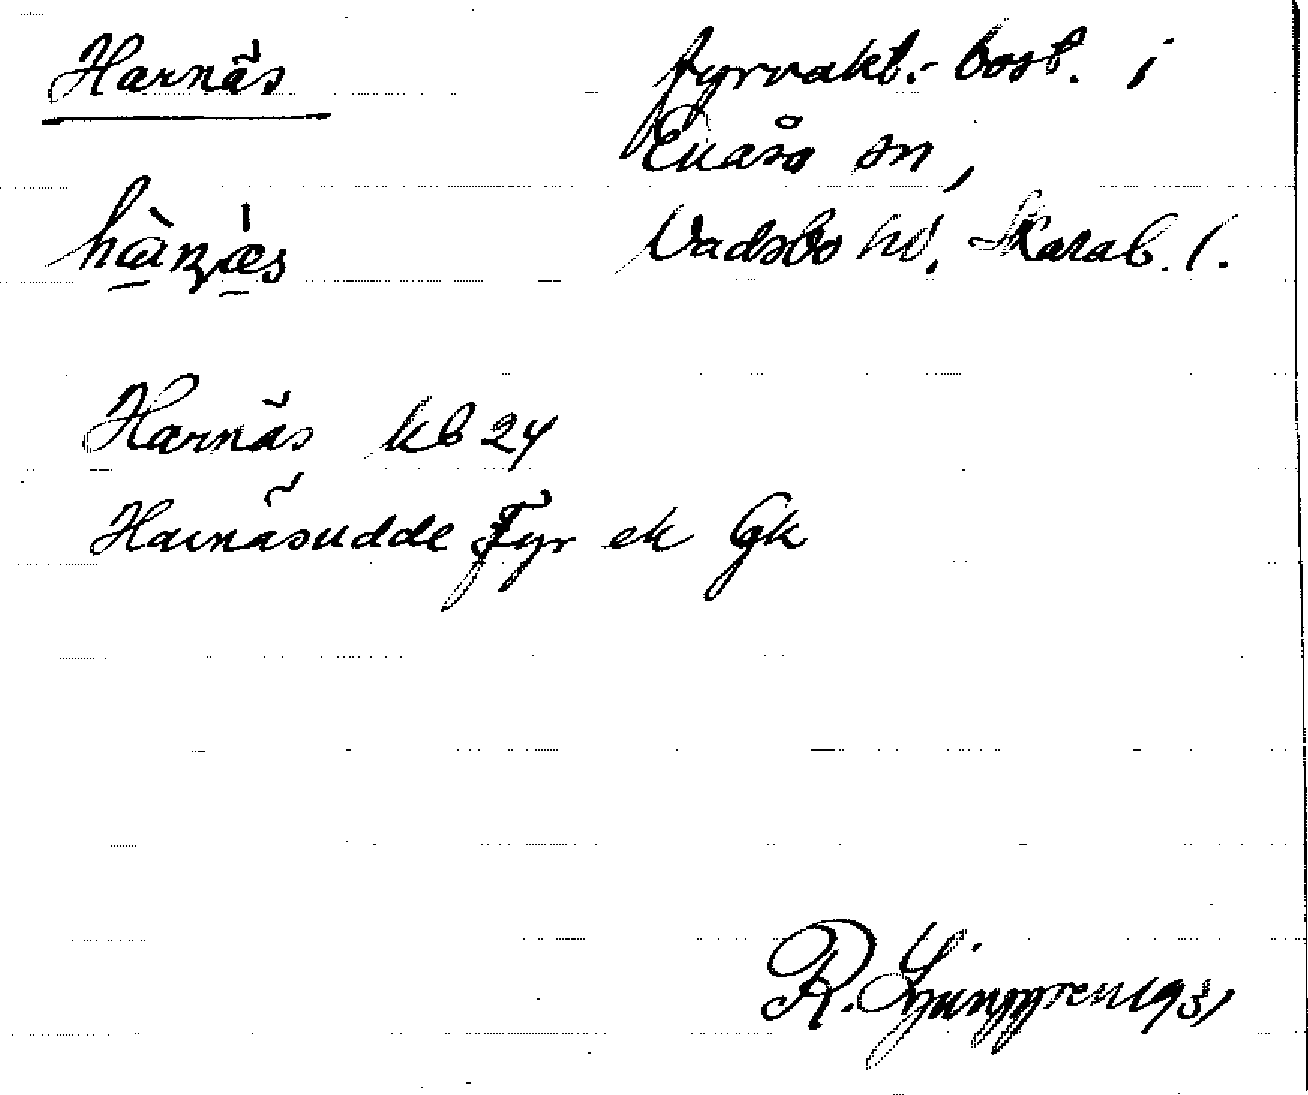 Harnäs fyrvakt.-bost. i
Enåsa sn,
Vadsbo hd. Skarab. l.
Harnäs kb 24
Harnäsudde Fyr ek Gk
R. Ljunggren 1931